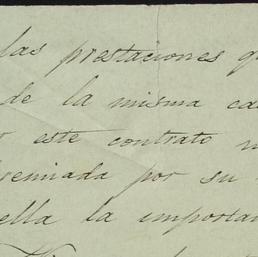 las prestaciones q
de la misma ca
este contrato
remiada por su
ella la importan